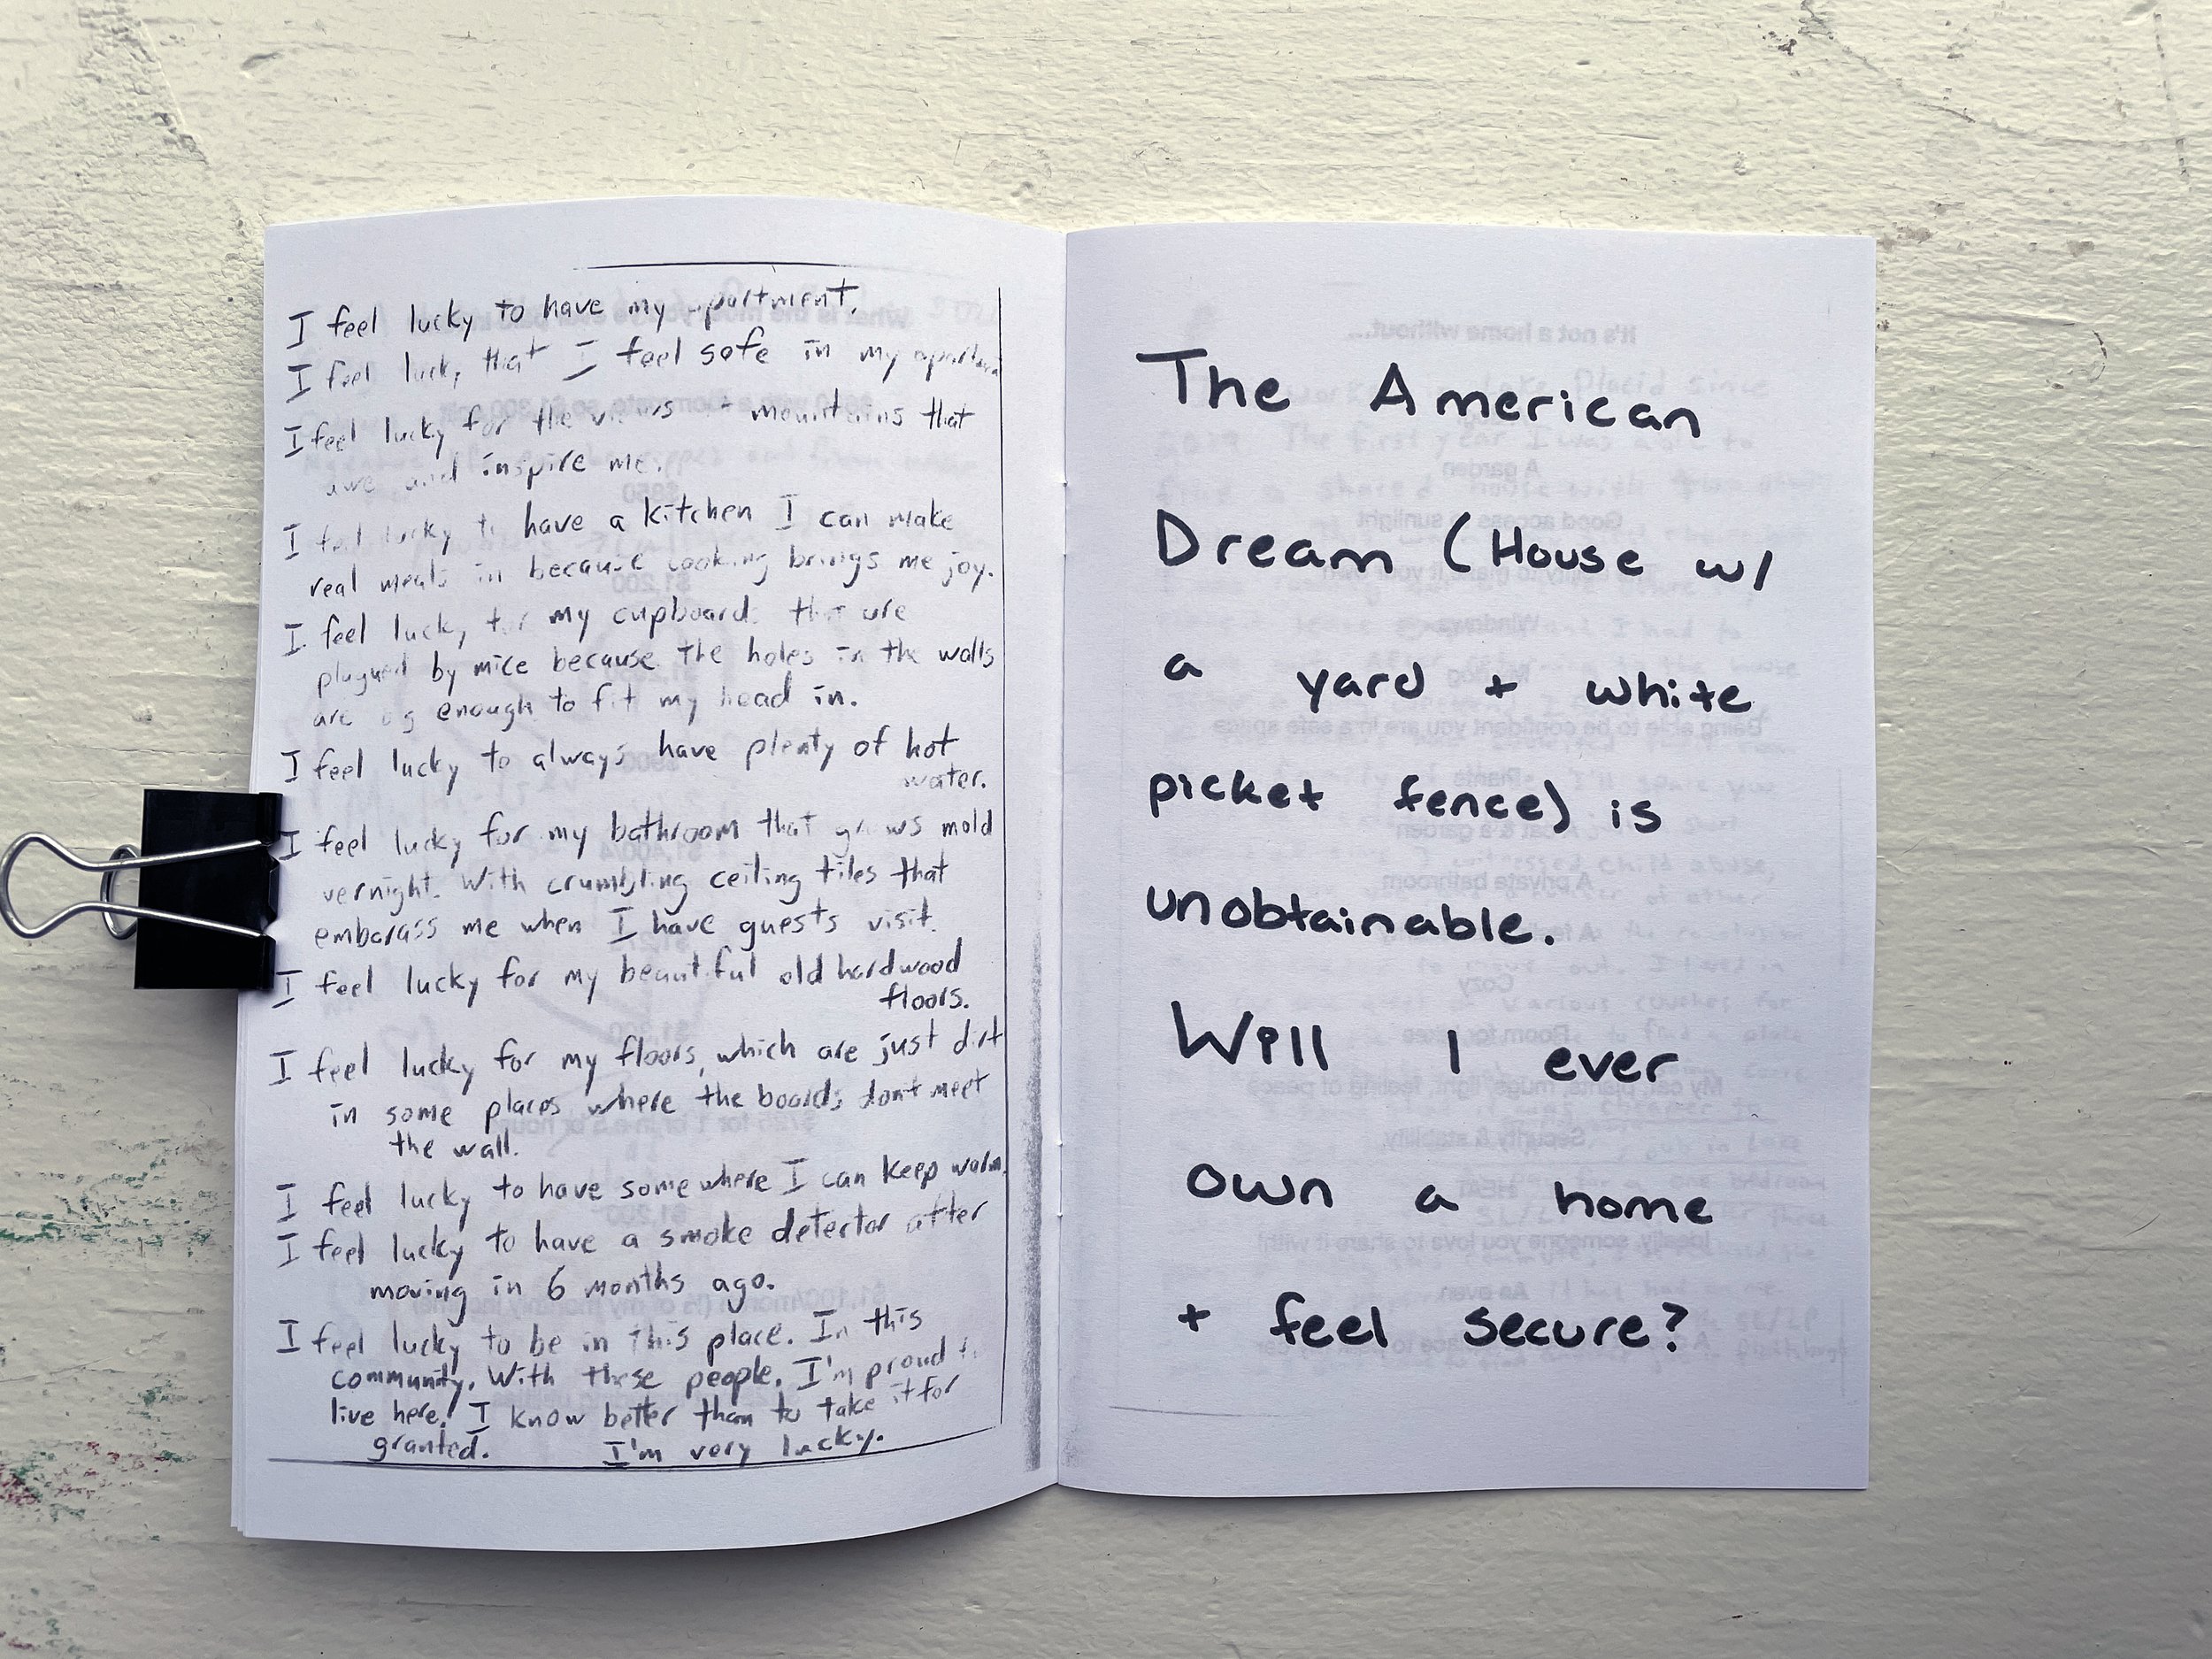 I feel lucky to have my apartment.
I feel lucky that I feel safe in my
I feel lucky for the views + mountains that
awe and inspire me.
I feel lucky to have a kitchen I can make
real meals in because cooking brings me joy.
I feel lucky for my cupboards that are
plagued by mice because the holes in the walls
are big enough to fit my head in.
I feel lucky to always have plenty of hot
water.
I feel lucky for my bathroom that grows mold
vernight. With crumbling ceiling tiles that
embarass me when I have guests visit.
I feel lucky for my beautiful old hardwood
floors.
I feel lucky for my floors, which are just dirt
in some places where the boards don't meet
the wall.
I feel lucky to have somewhere I can keep warm.
I feel lucky to have a smoke detector after
moving in 6 months ago.
I feel lucky to be in this place. In this
community. With these people. I'm proud to
live here! I know better than to take it for
granted. I'm very lucky.
The American
Dream (House w/
a yard + white
picket fence) is
unobtainable.
Will I ever
own a home
+ feel secure?